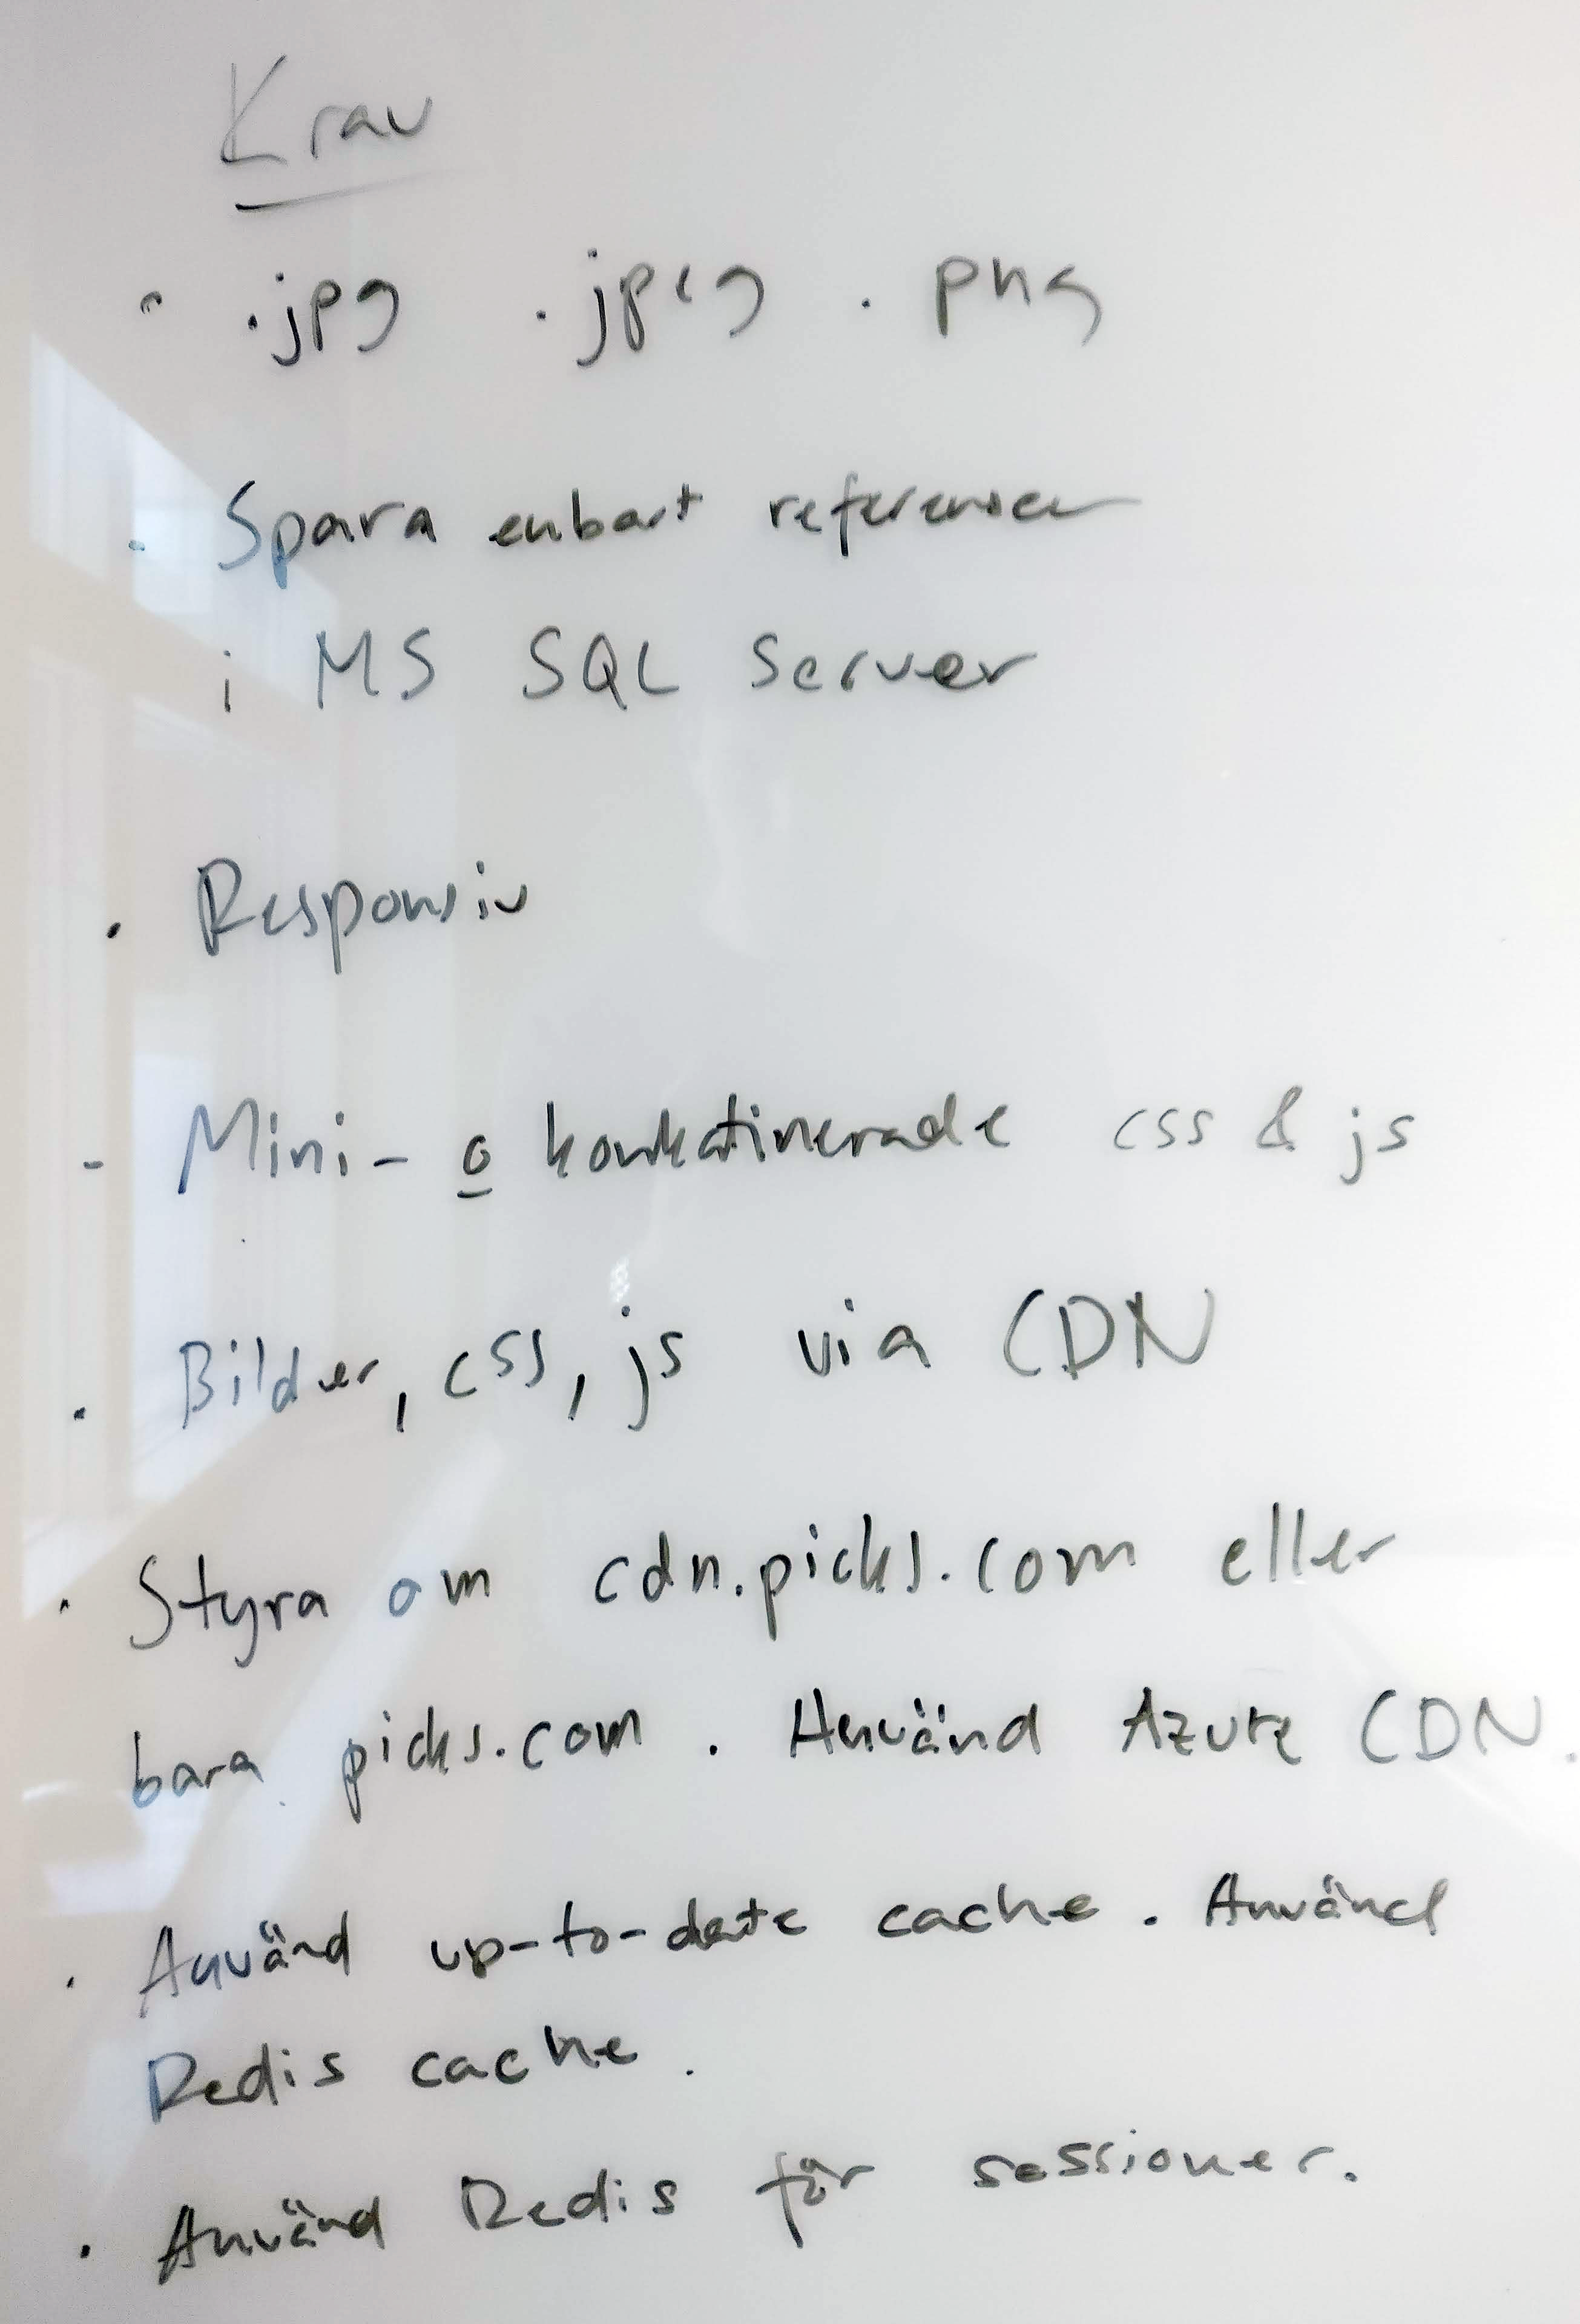 Krav
• .jpg .jpeg .png
- Spara enbart referenser
i MS SQL Server
• Responsiv
- Mini- o konkatinerade css & js
• Bilder, css, js via CDN
• Styra om cdn.picks.com eller
bara picks.com. Använd Azure CDN.
• Använd up-to-date cache. Använd
Redis cache.
• Använd Redis för sessioner.